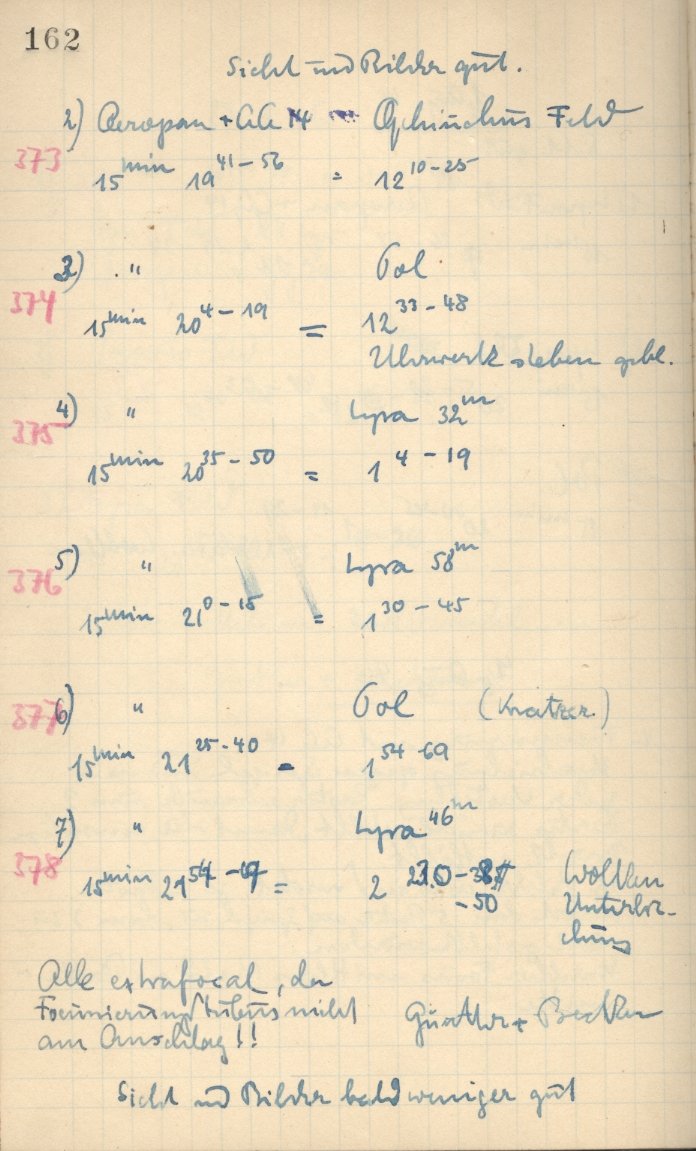 162
Sicht und Bilder gut.
2) Aeropan + GG 14 Ophiuchus Feld
373
15 min 19 41-56 = 12 10-25
3) " Pol
374
15 min 20 4-19 = 12 33-48
Uhrwerk stehen gebl.
4) " Lyra 32 m
375
15 min 20 35-50 = 1 4-19
5) " Lyra 58 m
376
15 min 21 0-15 = 1 30-45
6) " Pol (Kratzer)
377
15 min 21 25-40 = 1 54-69
7) " Lyra 46 m
378
15 min 21 = 2 Wolken
-50 Unterbre-
chung
Alle extrafocal, da
Focussierung Tubus nicht
am Anschlag!! Günther + Becker
Sicht und Bilder bald weniger gut